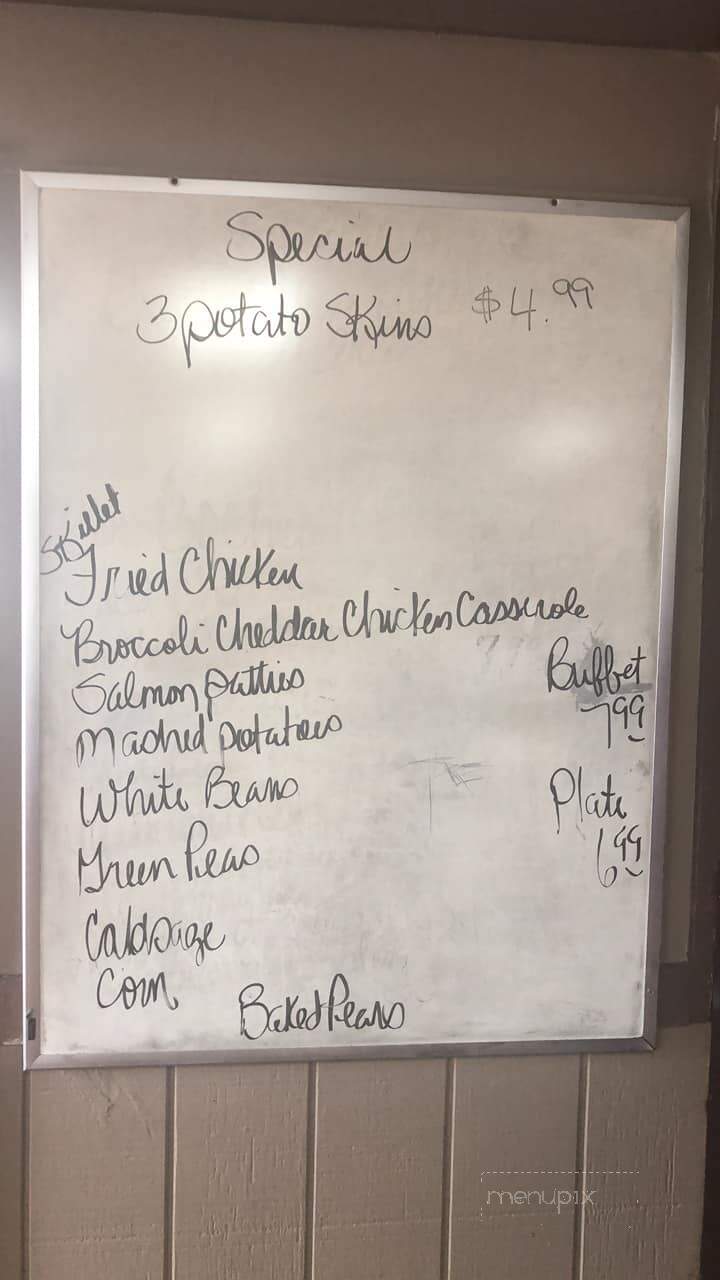 Special
3 potato Skins $4.99
Skillet
Fried Chicken
Broccoli Cheddar Chicken Casserole
Salmon patties
Buffet
7.99
Mashed potatoes
White Beans
Plate
6.99
Green Peas
Cabbage
Corn
Baked Pears
menupix